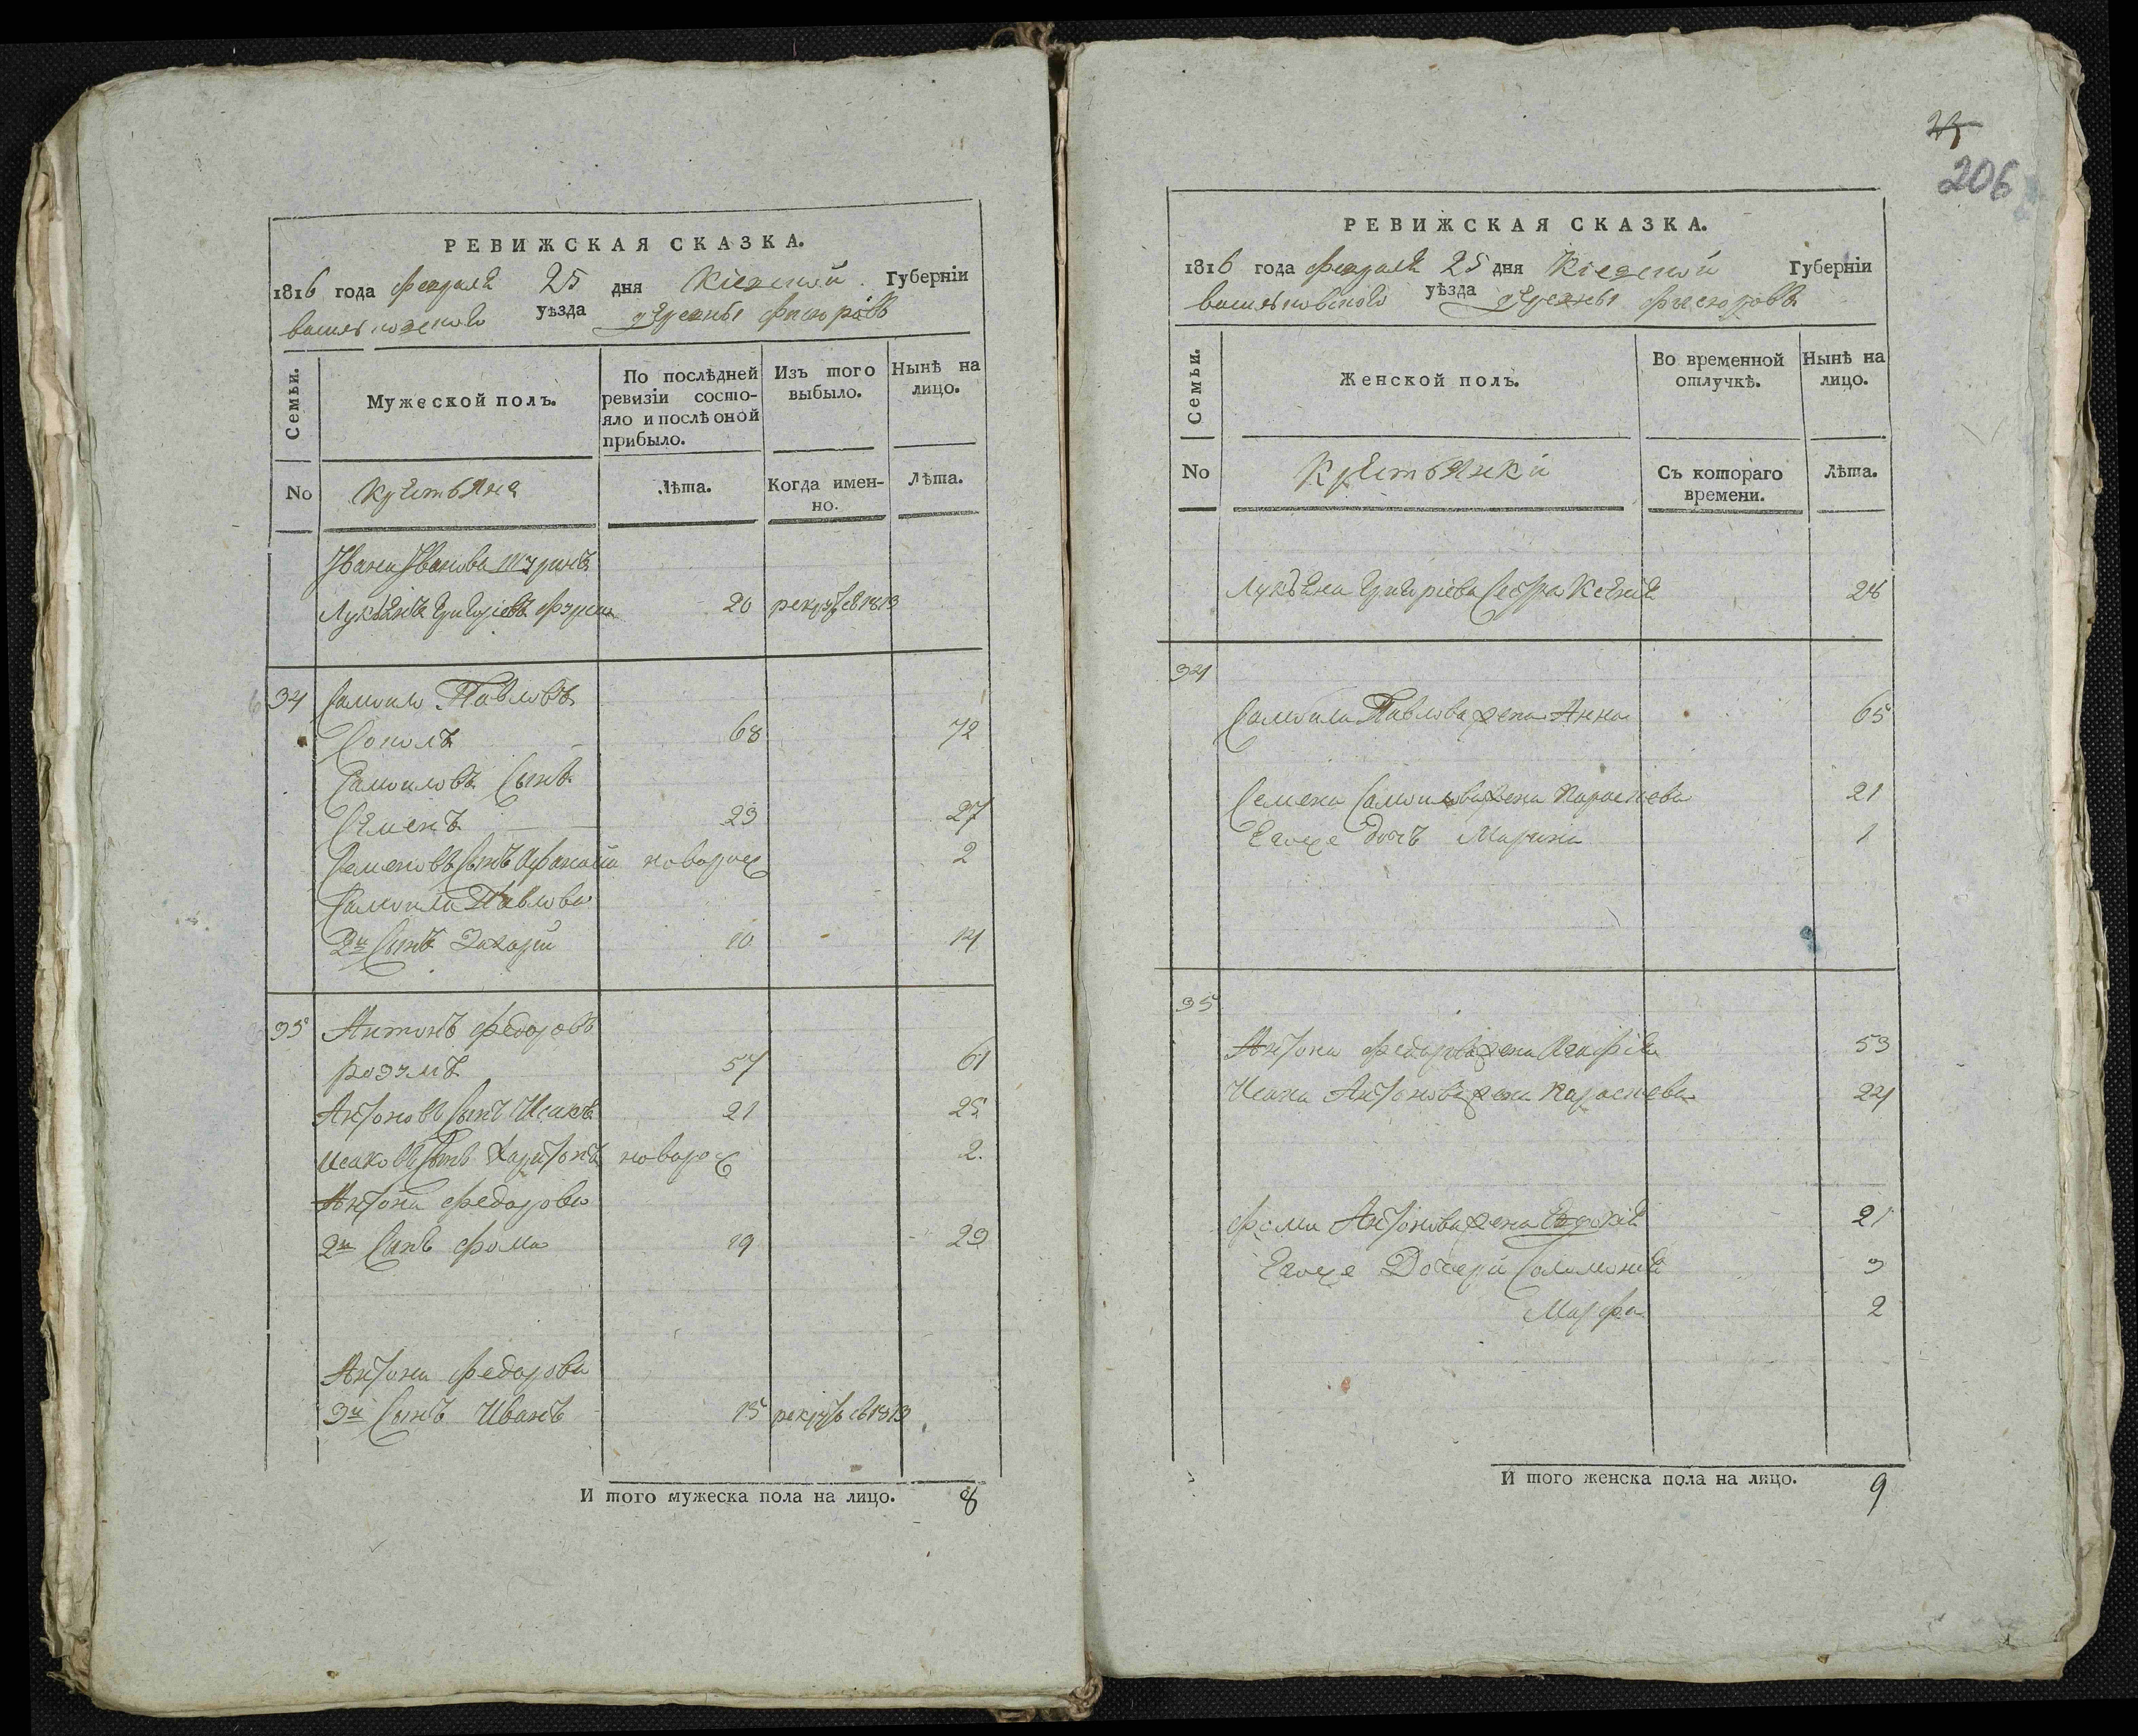 РЕВИЖСКАЯ СКАЗКА.
1816 года февраля 25 дня Кіевской Губерніи
васильковского уѣзда деревны
Семьи.
Мужеской полъ.
По послѣдней ревизіи состо-
яло и послѣ оной
прибыло.
Изъ того
выбыло.
Нынѣ на
лицо.
No
Крестьяне
Лѣта.
Когда имен-
но.
Лѣта.
Ивана Иванова
Лукьянъ Григоріевъ 20 рекрут въ 1813
34 Самоило Павловъ
Соколъ 68 72
Самоиловъ Сынъ
Семенъ 23 27
Семеновъ Сынъ Афанасій новорож 2
Самоила Павлова
2й Сынъ Захарій 10 14
35 Антонъ Федоровъ
Розумъ 57 61
Антоновъ Сынъ Исакъ 21 25
Исаковъ Сынъ Харитонъ новорож 2.
Антона Федорова
2й Сынъ Фома 19 23
Антона Федорова
3й Сынъ Иванъ 15 рекрут въ 1813
И того мужеска пола на лицо. 8
206
РЕВИЖСКАЯ СКАЗКА.
1816 года февраля 25 дня Кіевской Губерніи
васильковского уѣзда деревны
Семьи.
Женской полъ.
Во временной
отлучкѣ.
Нынѣ на
лицо.
No
Крестьянки
Съ котораго
времени.
Лѣта.
Лукьяна Григоріева Сестра Ксенія 28
34
Самоила Павлова жена Анна 65
Семена Самоилова жена Параскева 21
Егоже дочъ Марина 1
35
Антона Федорова жена Агафія 53
Исака Антонова жена Параскева 24
Фомы Антонова жена Евдокія 21
Егоже Дочери Соломонія 3
Марфа 2
И того женска пола на лицо. 9